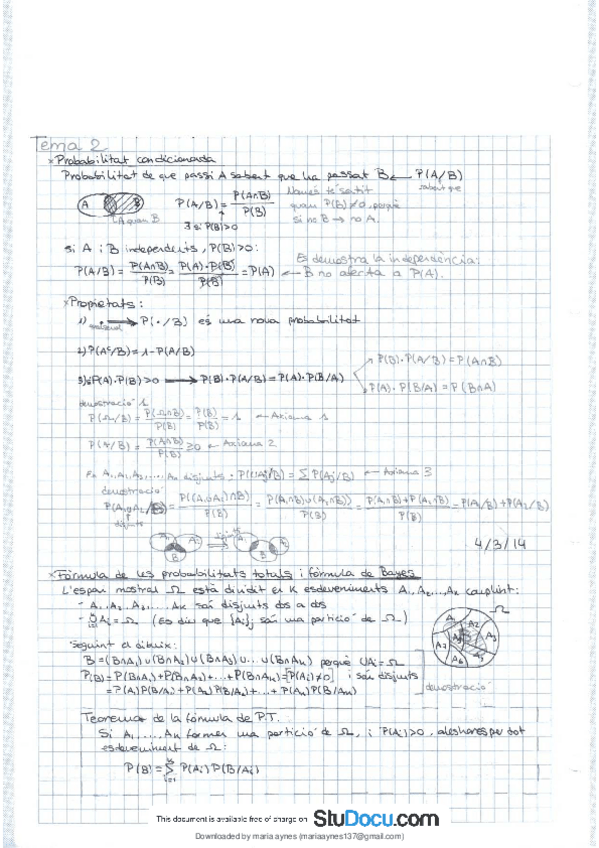 Tema 2
* Probabilitat condicionada
Probabilitat de que passi A sabent que ha passat B ← P(A/B)
sabent que
A B P(A/B) = P(A∩B) / P(B)
Només té sentit
quan P(B)≠0, perquè
si no B → no A.
∃ si P(B)>0
si A i B independents, P(B)>0:
P(A/B) = P(A∩B)/P(B) = P(A)·P(B)/P(B) = P(A)
Es demostra la independència:
← B no afecta a P(A).
* Propietats:
1) → P(·/B) és una nova probabilitat
2) P(Aᶜ/B) = 1 - P(A/B)
3) si P(A)·P(B)>0 → P(B)·P(A/B) = P(A)·P(B/A)
P(B)·P(A/B) = P(A∩B)
P(A)·P(B/A) = P(B∩A)
demostració 1
P(Ω/B) = P(Ω∩B)/P(B) = P(B)/P(B) = 1 ← Axioma 1
P(A/B) = P(A∩B)/P(B) ≥ 0 ← Axioma 2
A₁, A₂, ..., Aₙ disjunts: P(∪Aj/B) = Σ P(Aj/B) ← Axioma 3
demostració
P(A₁∪A₂/B) = P((A₁∪A₂)∩B)/P(B) = P((A₁∩B)∪(A₂∩B))/P(B) = P(A₁∩B)+P(A₂∩B)/P(B) = P(A₁/B)+P(A₂/B)
disjunts
A₁ A₂ B
A₁ A₂ B
4/3/14
* Fórmula de les probabilitats totals i fórmula de Bayes
L'espai mostral Ω està dividit en K esdeveniments A₁, A₂, ..., Aₖ complint:
- A₁, A₂, A₃, ..., Aₖ són disjunts dos a dos
- ∪Ai = Ω (Es diu que {Ai}i són una partició de Ω)
Seguint el dibuix:
B = (B∩A₁)∪(B∩A₂)∪(B∩A₃)∪...∪(B∩Aₙ) perquè ∪Ai = Ω
P(B) = P(B∩A₁)+P(B∩A₂)+...+P(B∩Aₙ) = [P(Ai)≠0] i són disjunts
= P(A₁)P(B/A₁)+P(A₂)P(B/A₂)+...+P(Aₙ)P(B/Aₙ)
demostració
Ω
A₁ A₂ A₃ A₅ A₆ A₇
Teorema de la fórmula de P.T.
Si A₁, ..., Aₖ formen una partició de Ω, i P(Ai)>0, aleshores per tot
esdeveniment de Ω:
P(B) = Σ P(Ai) P(B/Ai)
This document is available free of charge on StuDocu.com
Downloaded by maria aynes (mariaaynes137@gmail.com)